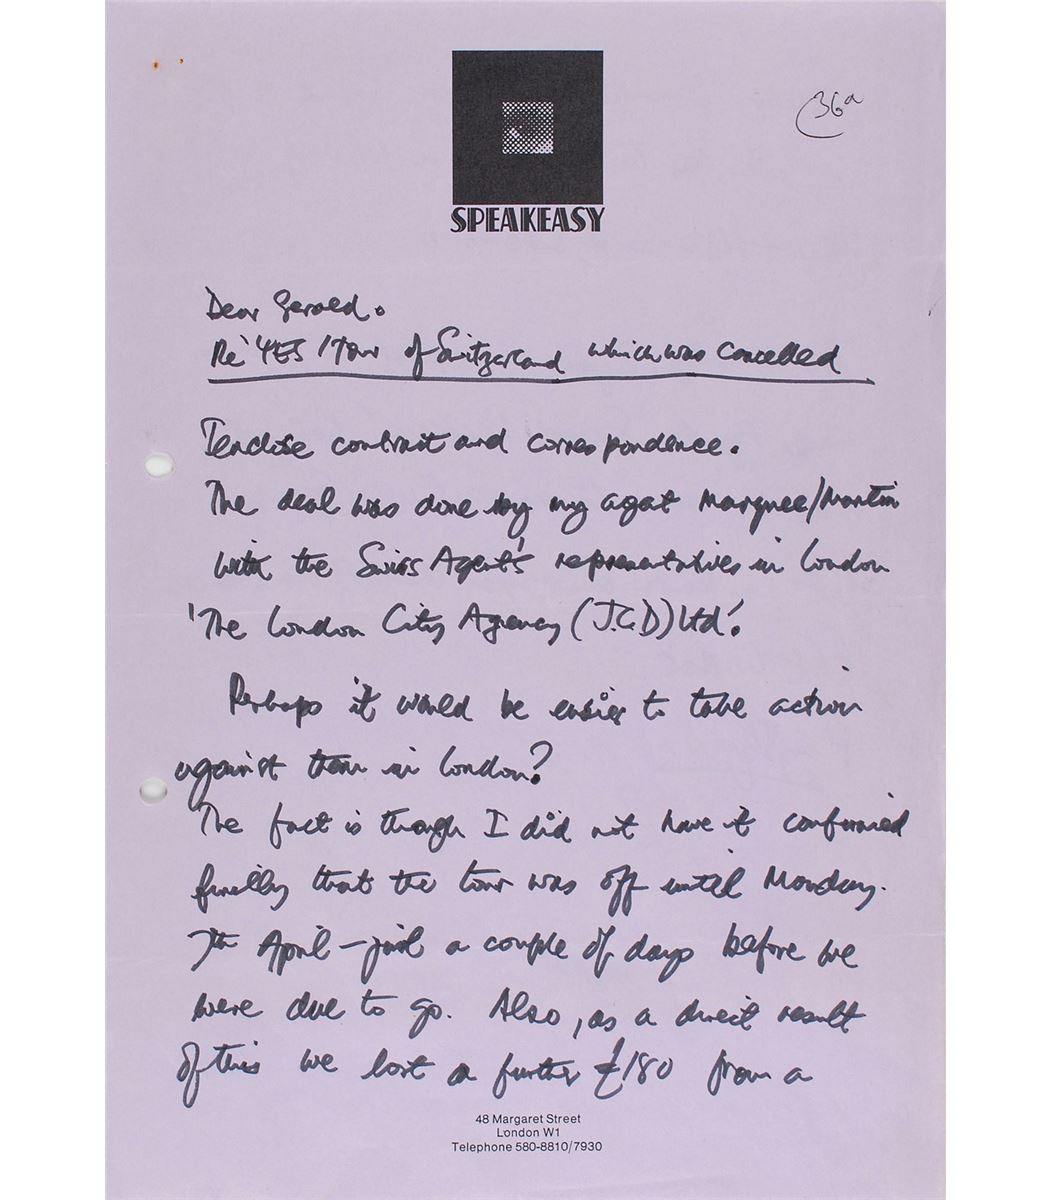 36a
SPEAKEASY
Dear Gerald.
Re 'YES' Tour of Switzerland which was cancelled
I enclose contract and correspondence.
The deal was done by my agent Marquee/Martin
with the Swiss Agent's representatives in London
'The London City Agency (J.C.D) Ltd'.
Perhaps it would be easier to take action
against them in London?
The fact is though I did not have it confirmed
finally that the tour was off until Monday.
7th April – just a couple of days before we
were due to go. Also, as a direct result
of this we lost a further £180 from a
48 Margaret Street
London W1
Telephone 580-8810/7930